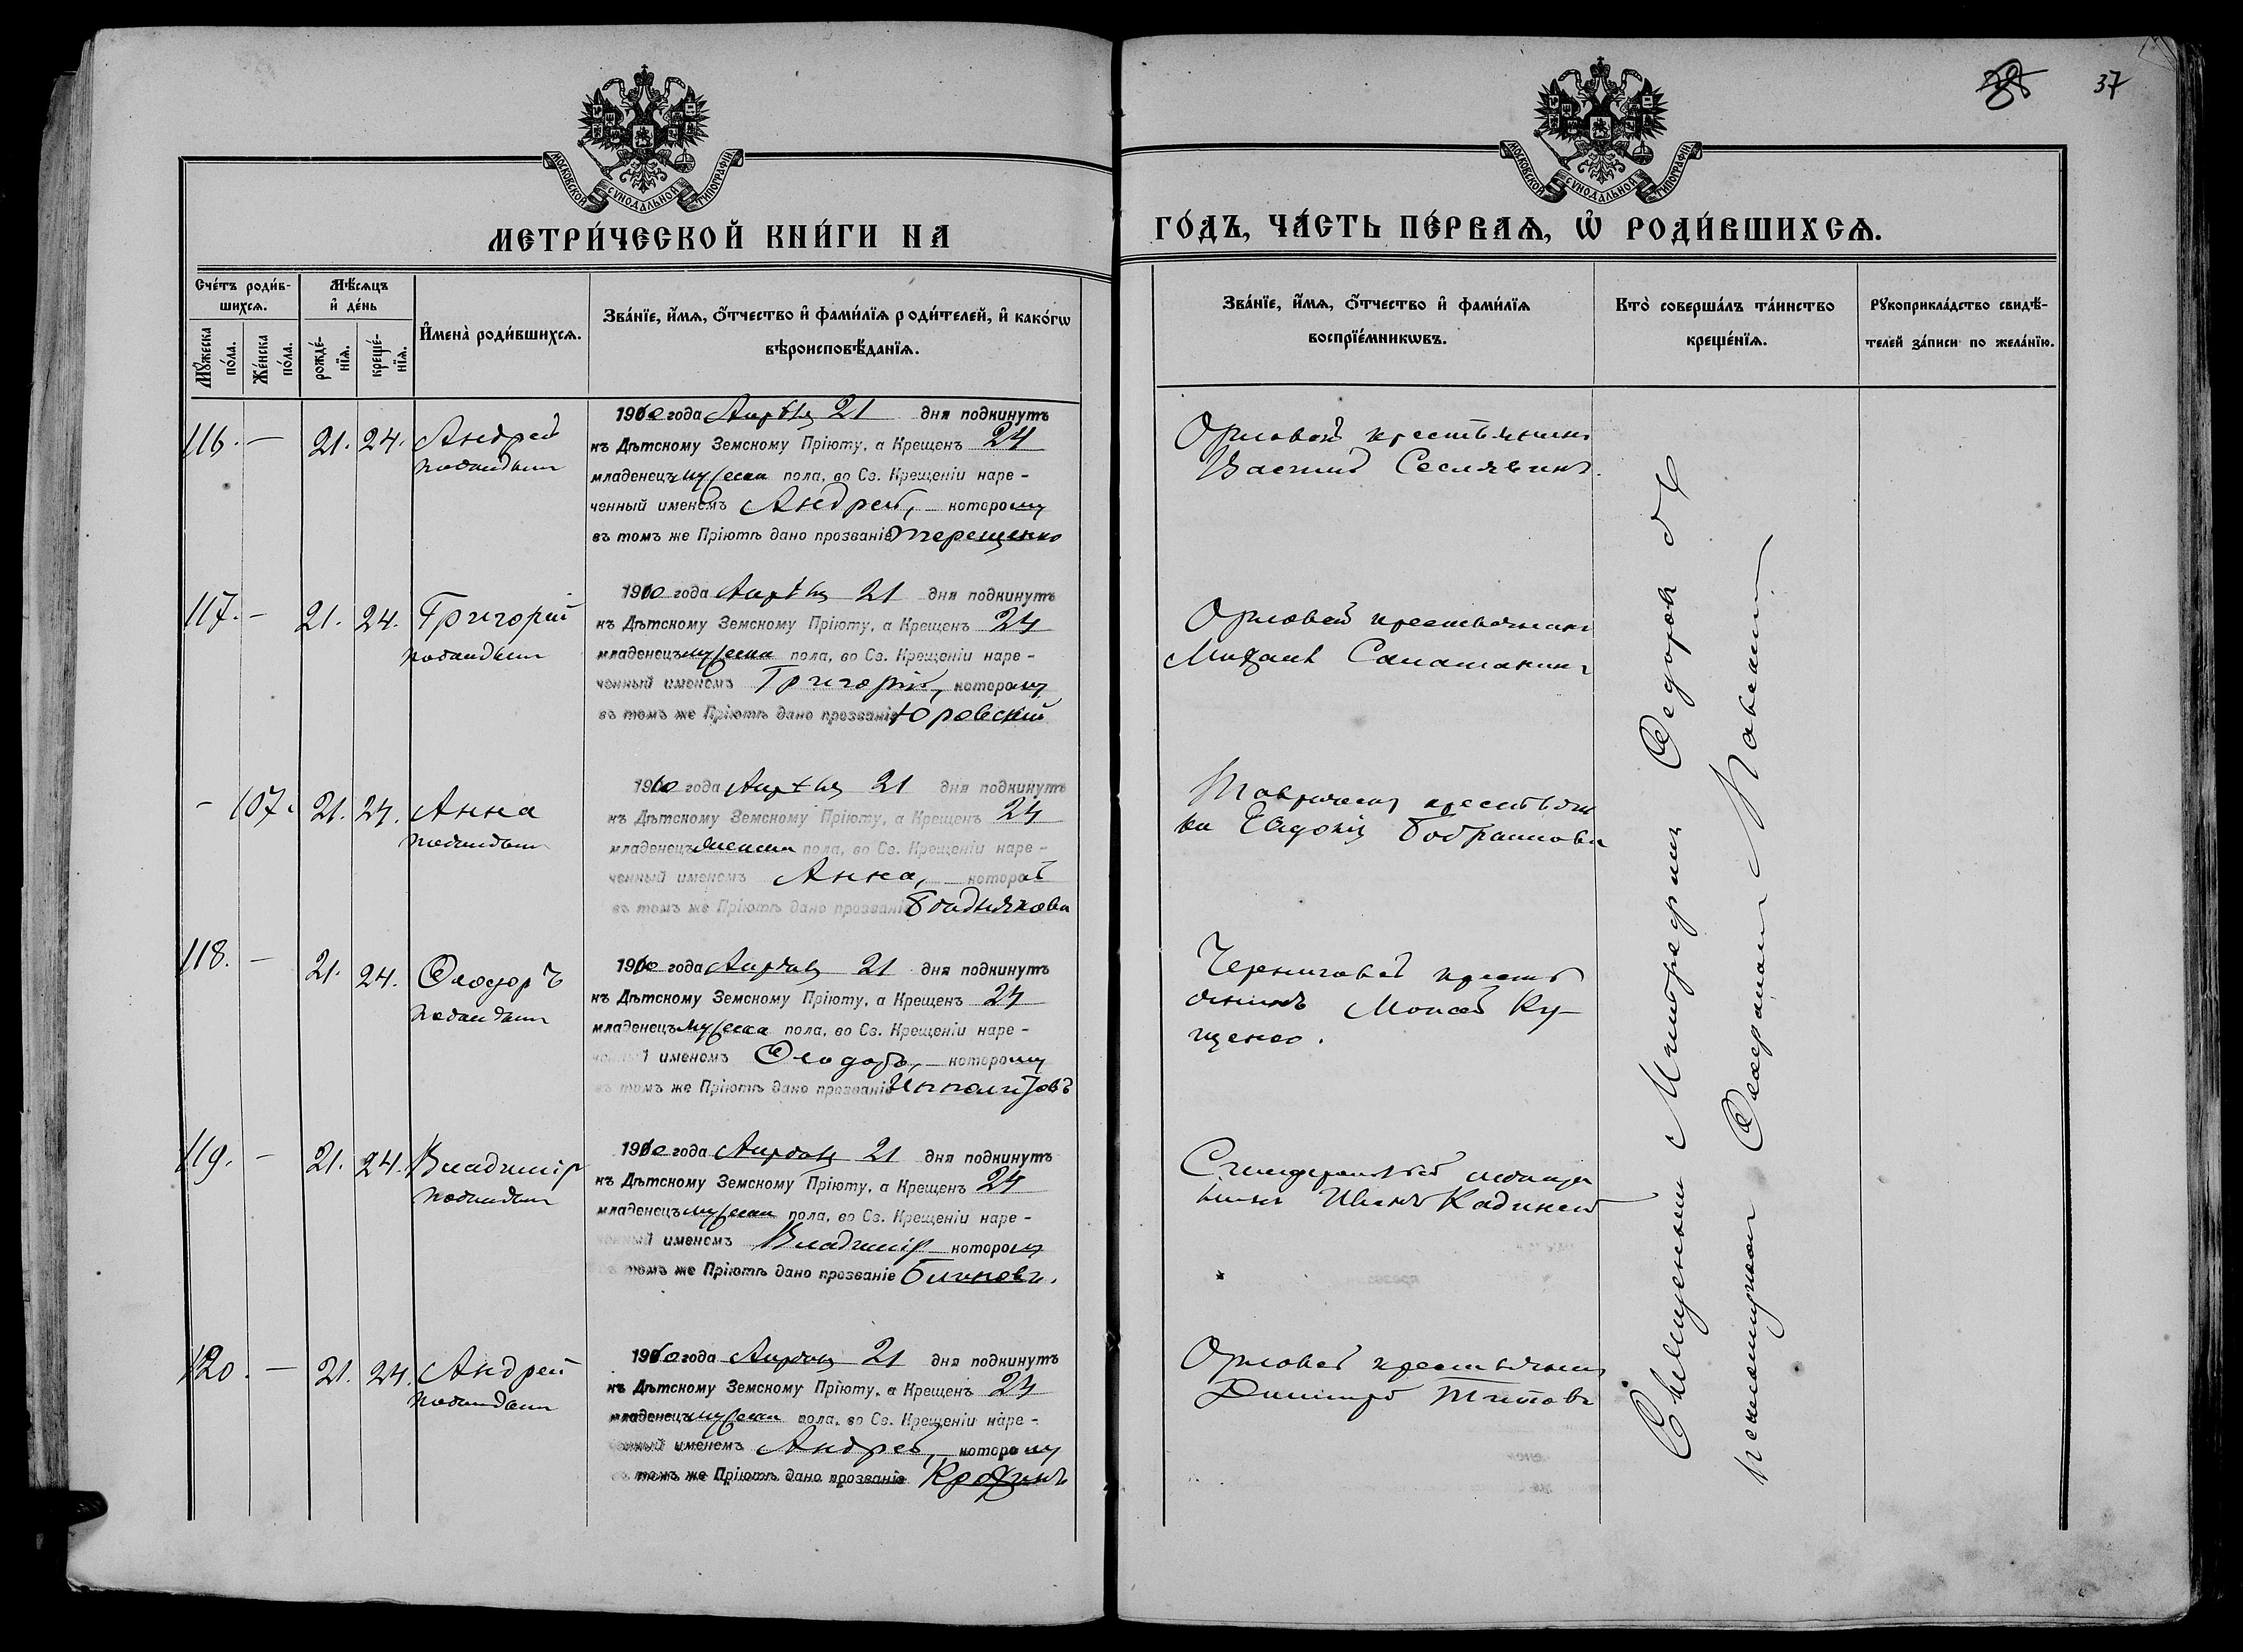 37
МОСКОВСКОЙ СУНОДАЛЬНОЙ ТИПОГРАФІИ
МОСКОВСКОЙ СУНОДАЛЬНОЙ ТИПОГРАФІИ
МЕТРИ́ЧЕСКОЙ КНИ́ГИ НА
ГО́ДЪ, ЧА́СТЬ ПЕ́РВАѦ, Ѡ҆ РОДИ́ВШИХСѦ.
Сче́тъ роди́в-
шихсѧ.
Мꙋ́жеска по́ла.
Же́нска по́ла.
Мѣ́сѧцъ
и҆ де́нь
рожде́-нїѧ.
креще́-нїѧ.
И҆мена̀ роди́вшихсѧ.
Зва́нїе, и҆́мѧ, ѻ҆́тчество и҆ фами́лїѧ роди́телей, и҆ како́гѡ
вѣроисповѣ́данїѧ.
Зва́нїе, и҆́мѧ, ѻ҆́тчество и҆ фами́лїѧ
воспрїе́мникѡвъ.
Кто̀ соверша́лъ та́инство
креще́нїѧ.
Рꙋкоприкла́дство свидѣ́-
телей за́писи по жела́нїю.
116. — 21. 24. Андрей
1910 года Апрѣля 21 дня подкинутъ
къ Дѣтскому Земскому Пріюту, а Крещенъ 24
младенецъ мужеска пола, во Св. Крещеніи наре-
ченный именемъ Андрей, которому
въ томъ же Пріютѣ дано прозваніе Терещенко
Орловской крестьянинъ
117. — 21. 24. Григорій
1910 года Апрѣля 21 дня подкинутъ
къ Дѣтскому Земскому Пріюту, а Крещенъ 24
младенецъ мужеска пола, во Св. Крещеніи наре-
ченный именемъ Григорій, которому
въ томъ же Пріютѣ дано прозваніе Юровскій
Орловской крестьянинъ
Михаилъ
— 107. 21. 24. Анна
1910 года Апрѣля 21 дня подкинутъ
къ Дѣтскому Земскому Пріюту, а Крещенъ 24
младенецъ женска пола, во Св. Крещеніи наре-
ченный именемъ Анна, которой
въ томъ же Пріютѣ дано прозваніе
Таврическая крестьян
ка Евдокія
118. — 21. 24. Ѳеодоръ
1910 года Апрѣля 21 дня подкинутъ
къ Дѣтскому Земскому Пріюту, а Крещенъ 24
младенецъ мужеска пола, во Св. Крещеніи наре-
ченный именемъ Ѳеодоръ, которому
въ томъ же Пріютѣ дано прозваніе Ипполитовъ
Черниговской кресть
янинъ Моисей Ку-
щенко.
119. — 21. 24. Владиміръ
1910 года Апрѣля 21 дня подкинутъ
къ Дѣтскому Земскому Пріюту, а Крещенъ 24
младенецъ мужеска пола, во Св. Крещеніи наре-
ченный именемъ Владиміръ которому
въ томъ же Пріютѣ дано прозваніе
Симферопольской мѣща
нинъ Иванъ
120. — 21. 24. Андрей
1910 года Апрѣля 21 дня подкинутъ
къ Дѣтскому Земскому Пріюту, а Крещенъ 24
младенецъ мужеска пола, во Св. Крещеніи наре-
ченный именемъ Андрей, которому
въ томъ же Пріютѣ дано прозваніе Крохинъ
Орловской крестьянинъ
Димитрій Титовъ
Священникъ Митрофанъ Ѳедоровъ съ
псаломщикомъ